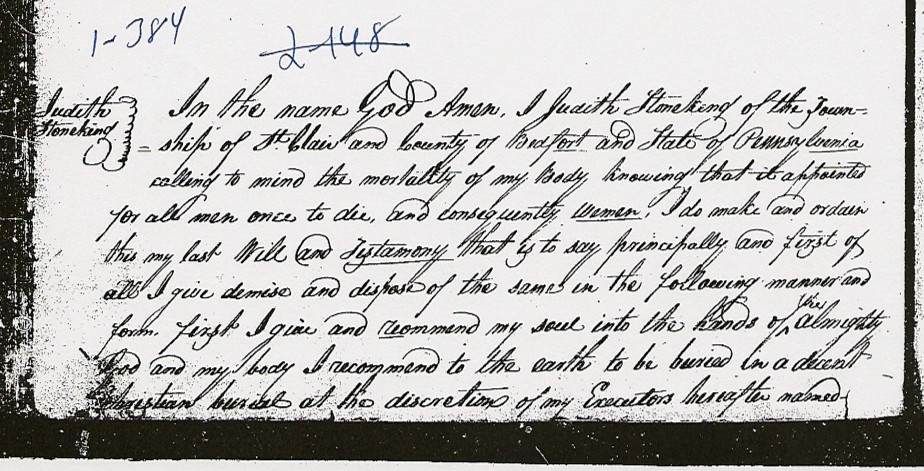 1-384
2448
Judith
Stoneking
In the name God Amen. I Judith Stoneking of the Town=
=ship of St Clair and County of Bedfort and State of Pennsylvenia
calling to mind the mortality of my Body knowing that it appointed
for all men once to die, and consequently women, I do make and ordain
this my last Will and Testamony that is to say principally and first of
all I give demise and dispose of the same in the following manner and
form. first I give and recommend my soul into the hands of the almighty
God and my body I recommend to the earth to be buried in a decent
Christian burial at the discretion of my Executors hereafter named